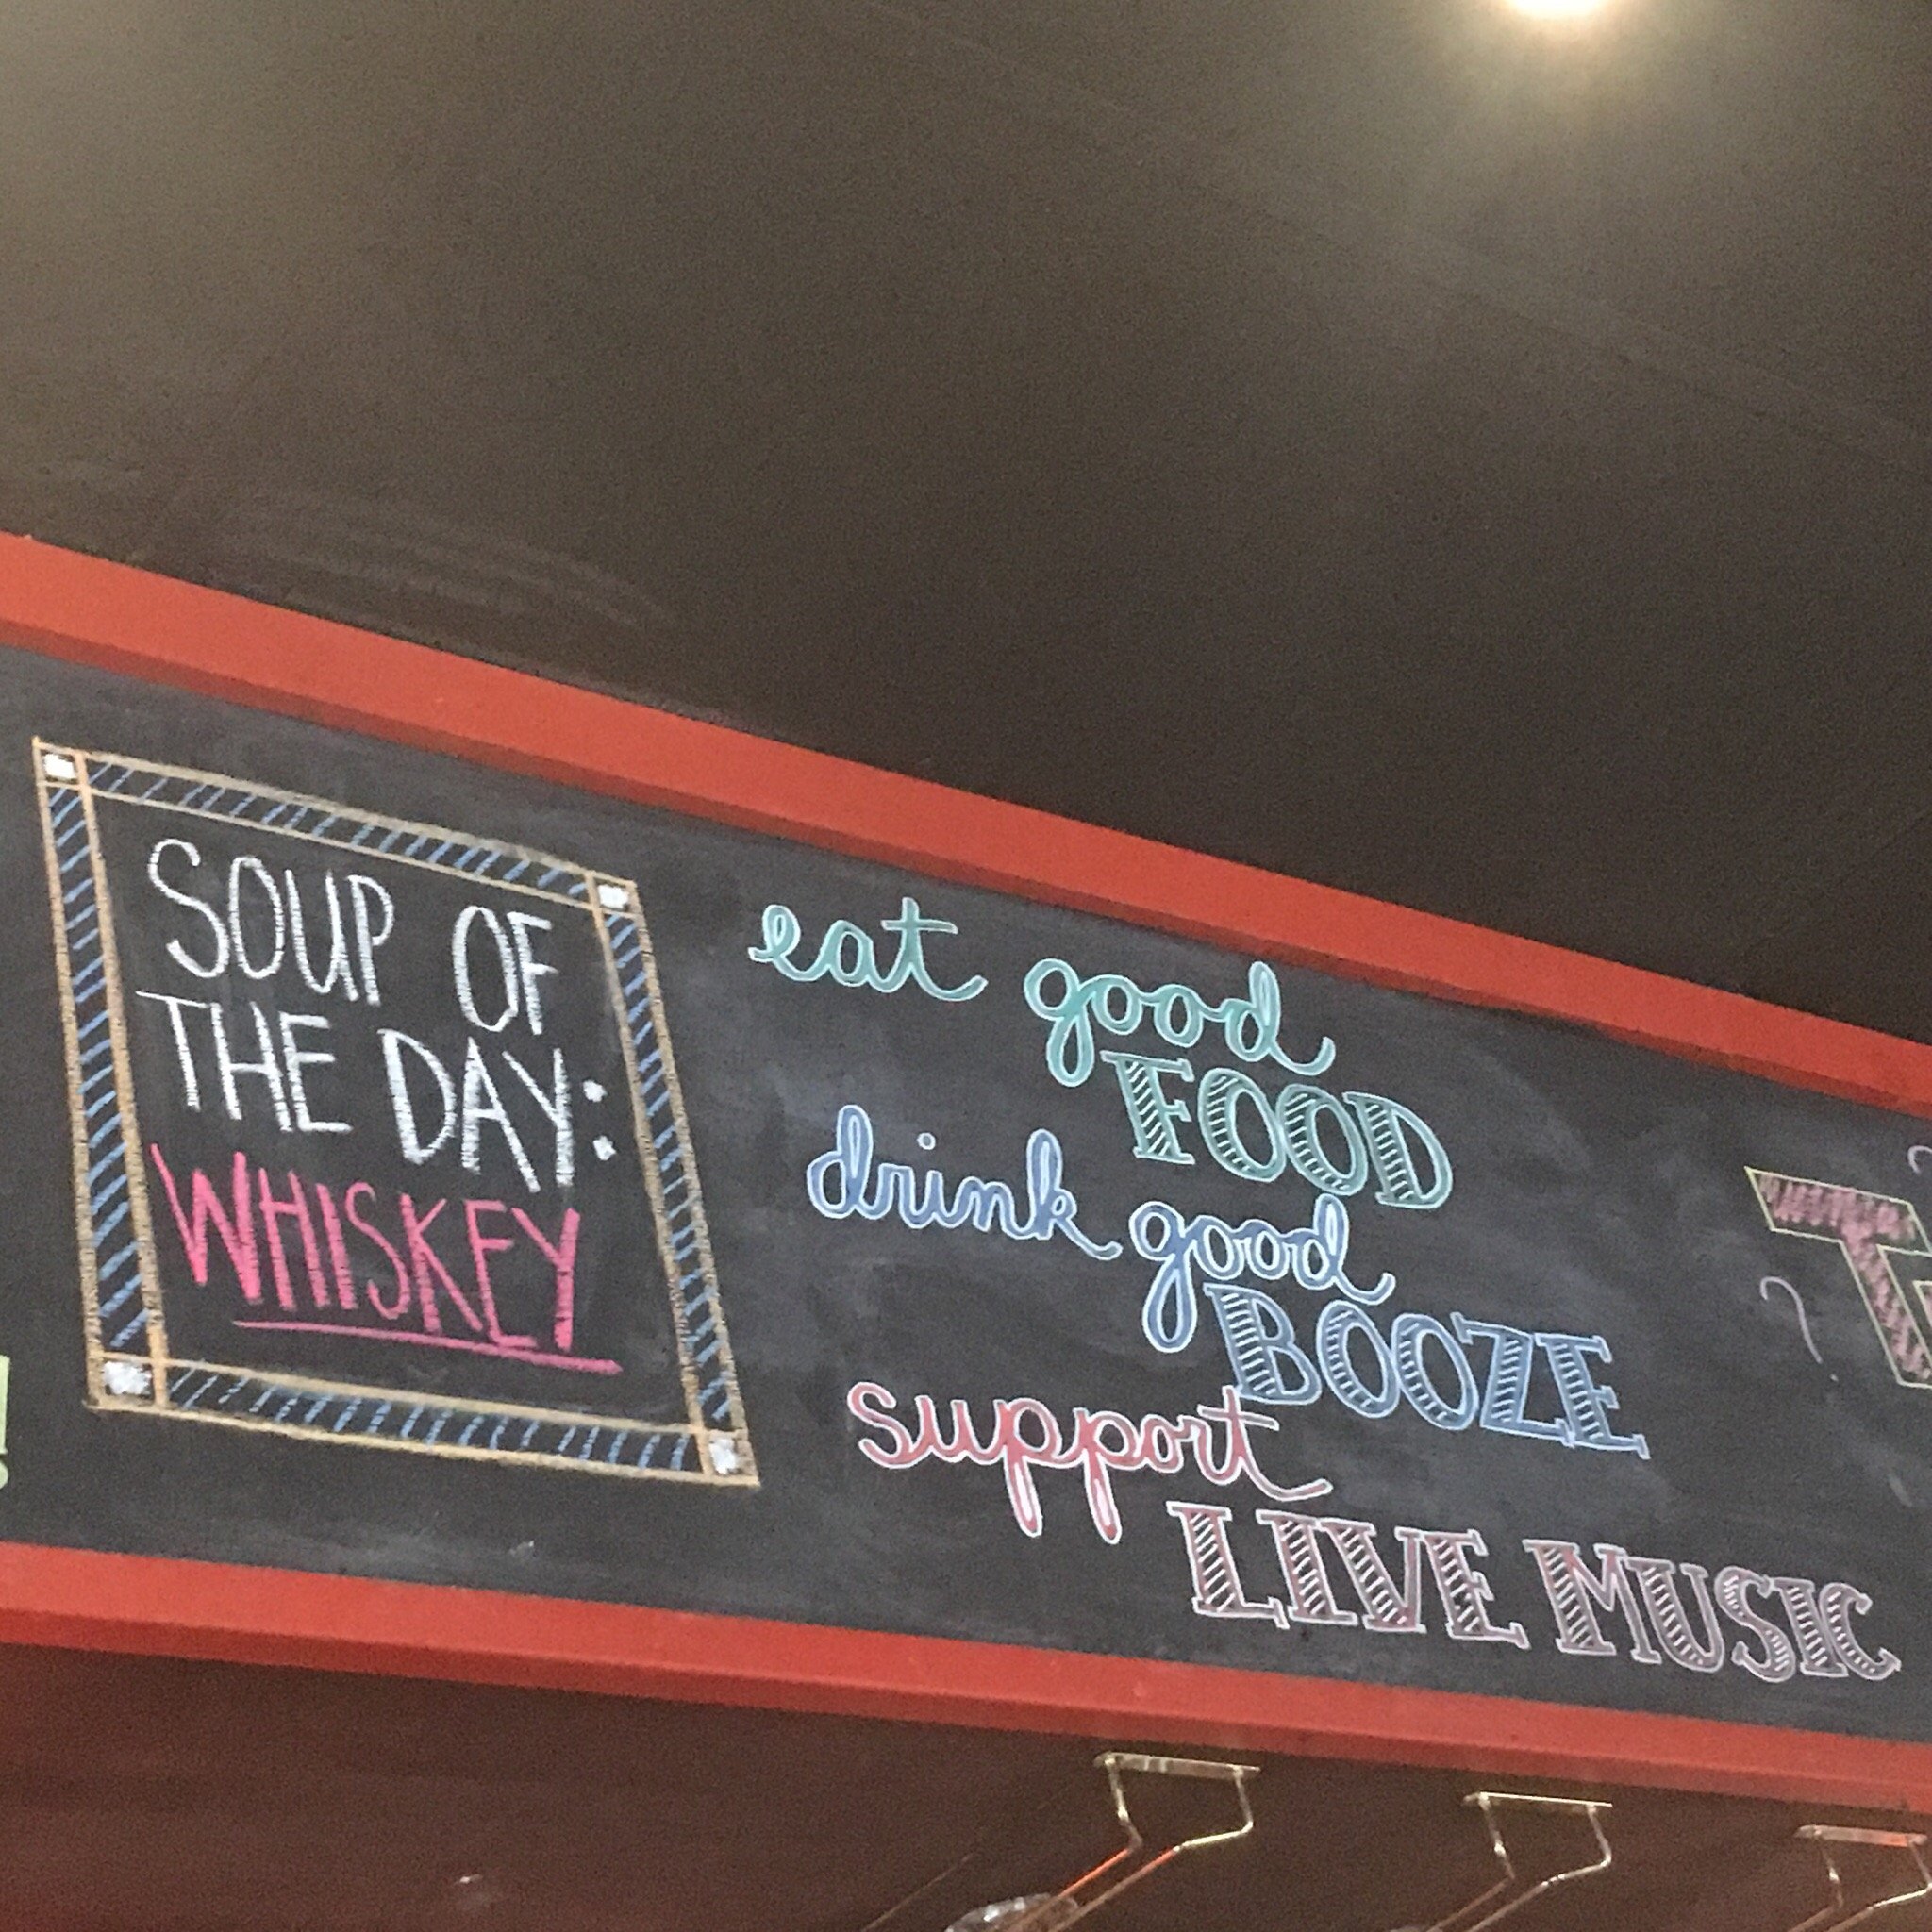 SOUP OF
THE DAY:
WHISKEY
eat good
FOOD
drink good
BOOZE
support
LIVE MUSIC